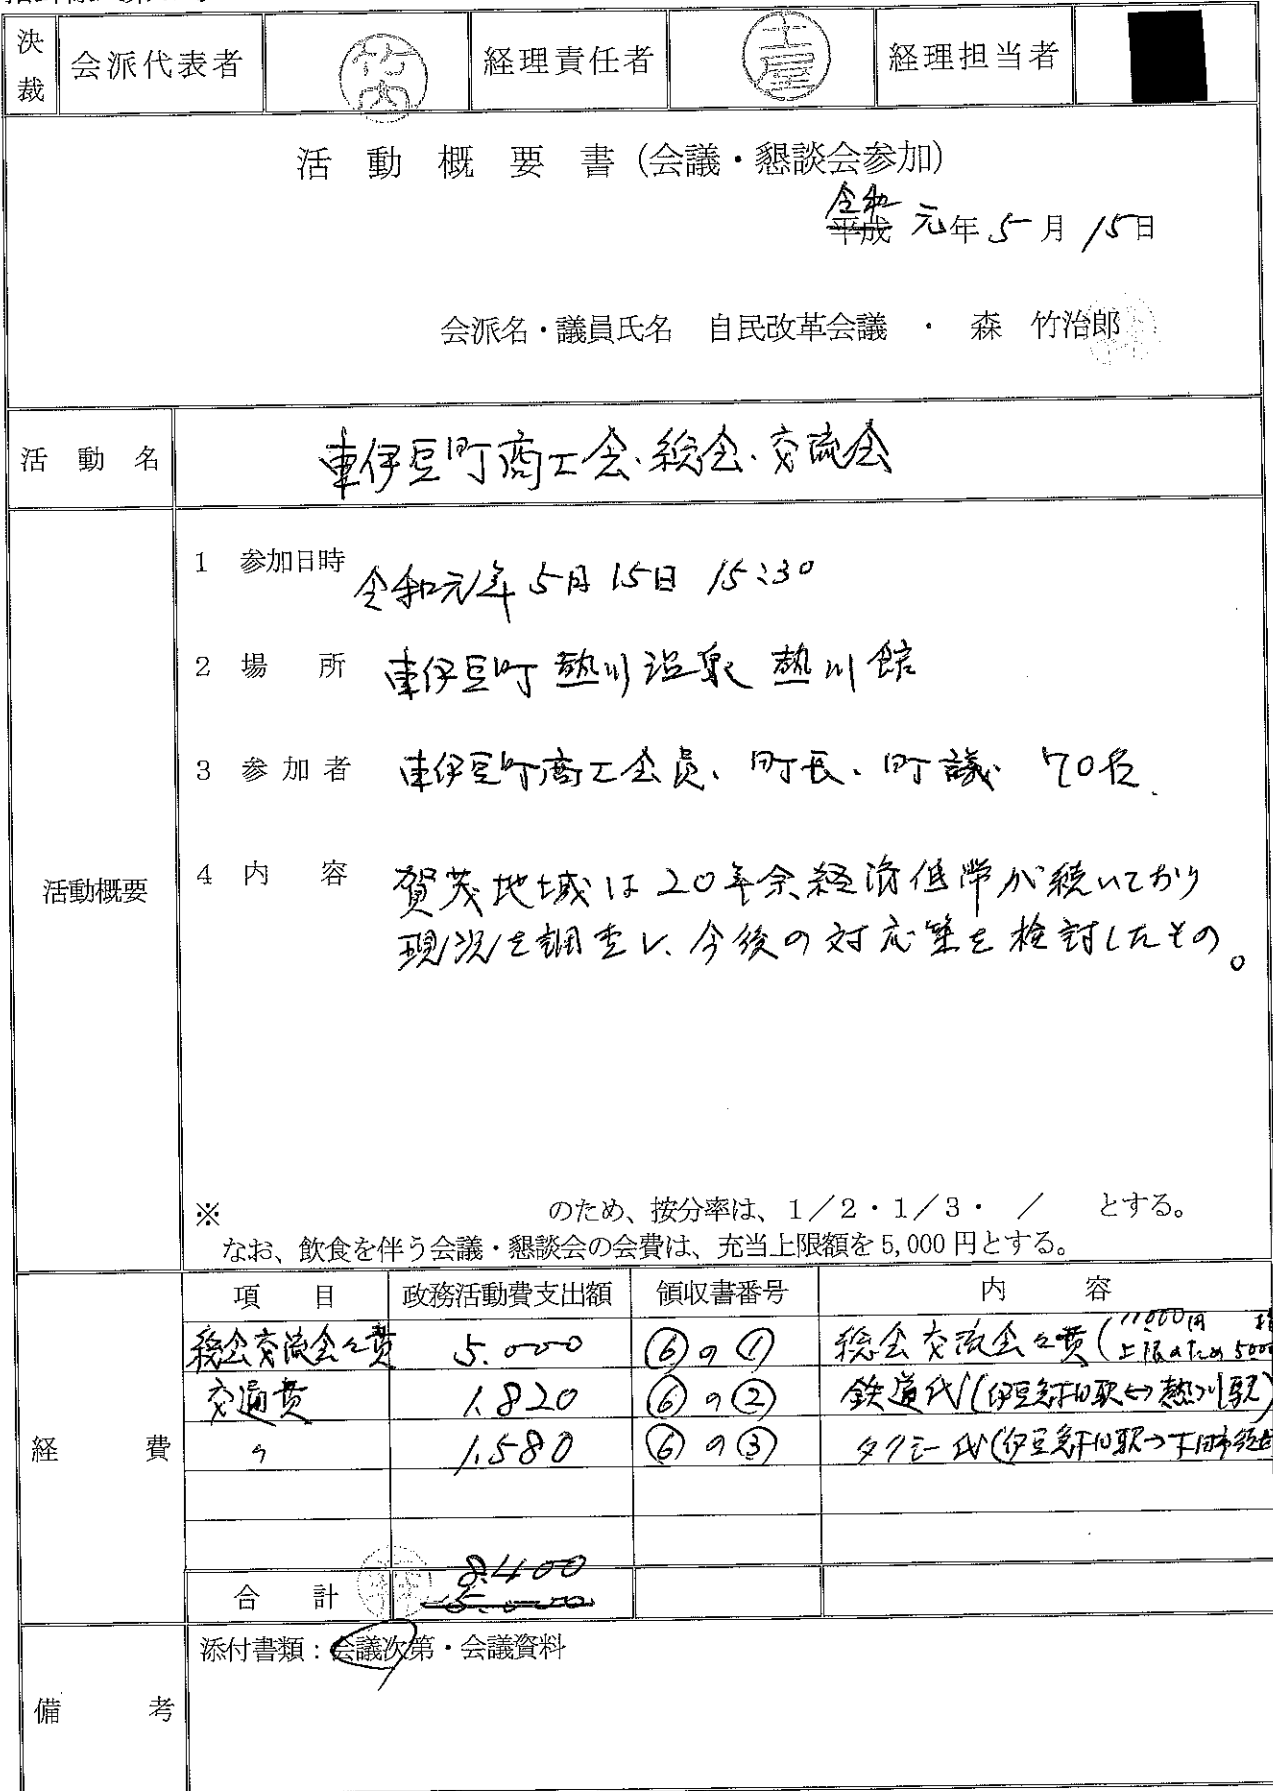 決裁 会派代表者 竹内 経理責任者 土屋 経理担当者
活動概要書（会議・懇談会参加）
令和
平成 元年5月15日
会派名・議員氏名 自民改革会議 ・ 森 竹治郎
活動名 東伊豆町商工会、総会、交流会
活動概要
1 参加日時 令和元年5月15日 15:30
2 場所 東伊豆町熱川温泉 熱川館
3 参加者 東伊豆町商工会員、町長、町議 70名
4 内容 賀茂地域は20年余経済低滞が続いており
現況を調査し、今後の対応策を検討したもの。
※ のため、按分率は、1／2・1／3・ ／ とする。
なお、飲食を伴う会議・懇談会の会費は、充当上限額を5,000円とする。
経費
項目 政務活動費支出額 領収書番号 内容
総会交流会々費 5.000 ⑥の① 総会交流会々費（11000円
上限のため5000
交通費 1.820 ⑥の② 鉄道代（伊豆急下田駅↔熱川駅）
〃 1.580 ⑥の③ タクシー代（伊豆急下田駅→下田市
8.400
合計 5.000
備考 添付書類：会議次第・会議資料